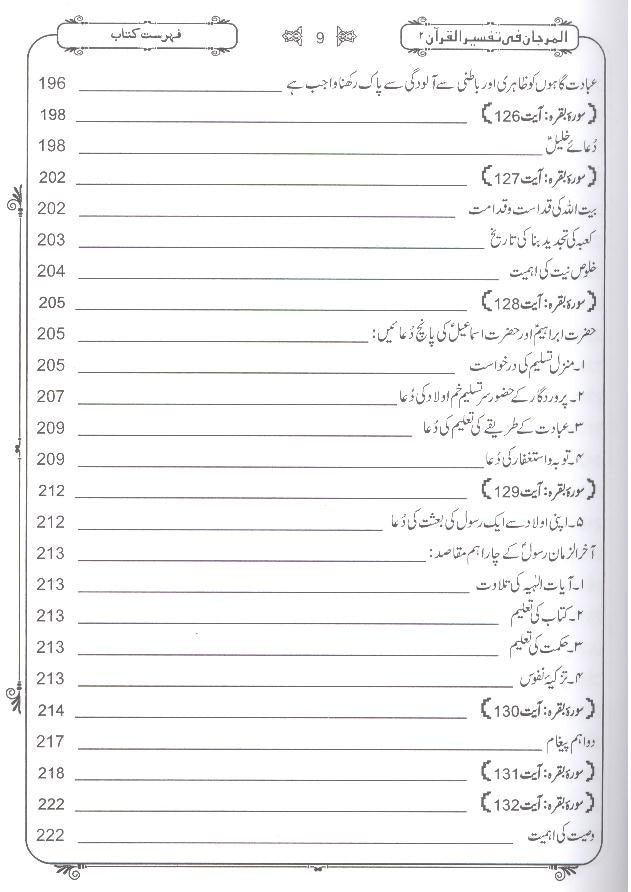 المرجان فی تفسیر القرآن ۲ 9 فہرست کتاب
عبادت گاہوں کو ظاہری اور باطنی سے آلودگی سے پاک رکھنا واجب ہے 196
﴿سورۂ بقرہ: آیت 126﴾ 198
دُعائے خلیلؑ 198
﴿سورۂ بقرہ: آیت 127﴾ 202
بیت اللہ کی قداست و قدامت 202
کعبہ کی تجدید بنا کی تاریخ 203
خلوص نیت کی اہمیت 204
﴿سورۂ بقرہ: آیت 128﴾ 205
حضرت ابراہیمؑ اور حضرت اسماعیلؑ کی پانچ دُعائیں: 205
۱۔ منزل تسلیم کی درخواست 205
۲۔ پروردگار کے حضور سر تسلیم خم اولاد کی دُعا 207
۳۔ عبادت کے طریقے کی تعلیم کی دُعا 209
۴۔ توبہ و استغفار کی دُعا 209
﴿سورۂ بقرہ: آیت 129﴾ 212
۵۔ اپنی اولاد سے ایک رسول کی بعثت کی دُعا 212
آخر الزمان رسولؐ کے چار اہم مقاصد: 213
۱۔ آیات الٰہیہ کی تلاوت 213
۲۔ کتاب کی تعلیم 213
۳۔ حکمت کی تعلیم 213
۴۔ تزکیۂ نفوس 213
﴿سورۂ بقرہ: آیت 130﴾ 214
دو اہم پیغام 217
﴿سورۂ بقرہ: آیت 131﴾ 218
﴿سورۂ بقرہ: آیت 132﴾ 222
وصیت کی اہمیت 222